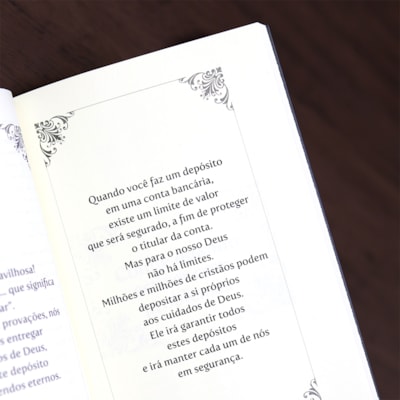 avilhosa!
... que significa
ar".
provações, nós
s entregar
os de Deus.
te depósito
endos eternos.
Quando você faz um depósito
em uma conta bancária,
existe um limite de valor
que será segurado, a fim de proteger
o titular da conta.
Mas para o nosso Deus
não há limites.
Milhões e milhões de cristãos podem
depositar a si próprios
aos cuidados de Deus.
Ele irá garantir todos
estes depósitos
e irá manter cada um de nós
em segurança.